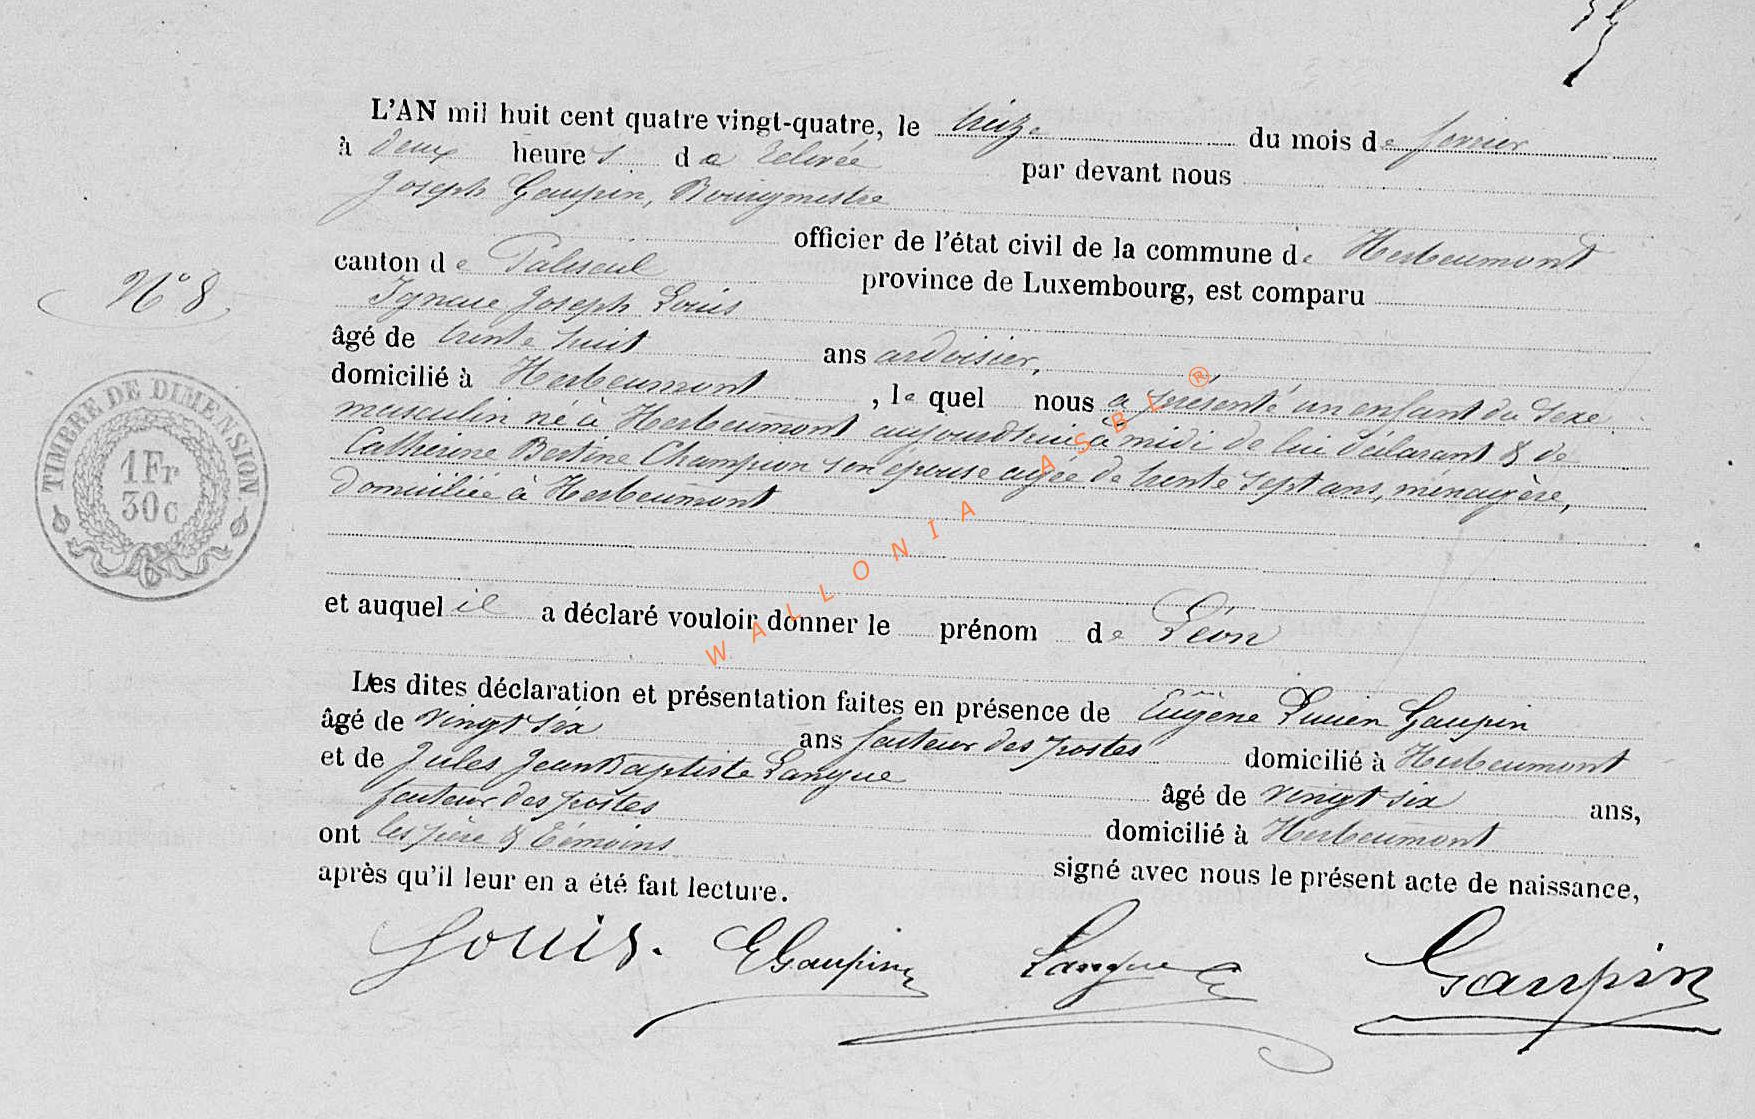 L'AN mil huit cent quatre vingt-quatre, le treize du mois de février
à deux heures de relevée par devant nous
Joseph Gaupin, Bourgmestre
officier de l'état civil de la commune de Herbeumont
canton de Paliseul province de Luxembourg, est comparu
Ignace Joseph Louis
N° 8.
âgé de trente huit ans ardoisier,
domicilié à Herbeumont, lequel nous a présenté un enfant du sexe
masculin né à Herbeumont aujourd'hui à midi de lui déclarant & de
Catherine Bertine Champion son épouse agée de trente sept ans, ménagère,
domiciliée à Herbeumont
TIMBRE DE DIMENSION
1Fr
30c
WALLONIA ASBL ®
et auquel il a déclaré vouloir donner le prénom de Léon
Les dites déclaration et présentation faites en présence de Eugène Lucien Gaupin
âgé de vingt six ans facteur des postes domicilié à Herbeumont
et de Jules Jean Baptiste Langue âgé de vingt six ans,
facteur des postes domicilié à Herbeumont
ont les père & témoins signé avec nous le présent acte de naissance,
après qu'il leur en a été fait lecture.
Louis. EGaupin Langue Gaupin